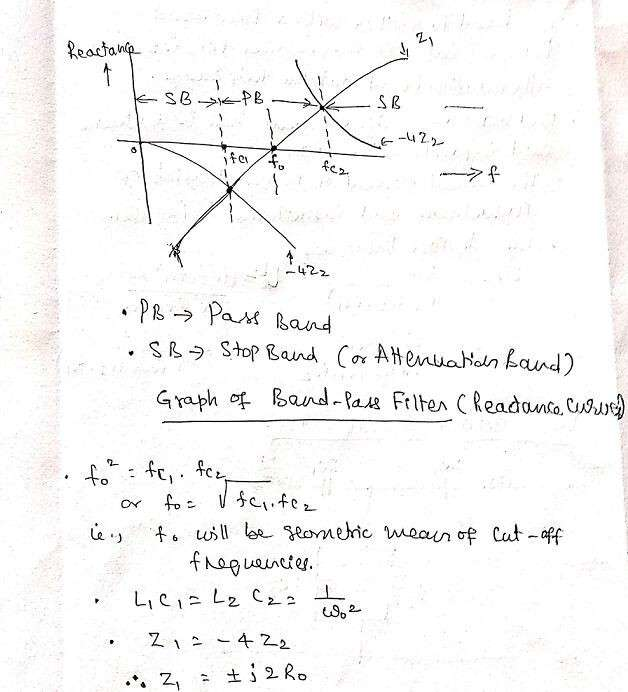 Reactance
Z₁
SB
PB
SB
-4Z₂
0
fc₁
f₀
fc₂
f
-4Z₂
• PB → Pass Band
• SB → Stop Band (or Attenuation Band)
Graph of Band-Pass Filter (Reactance Curves)
• f₀² = fc₁ . fc₂
or f₀ = √fc₁.fc₂
i.e., f₀ will be geometric mean of cut-off
frequencies.
• L₁C₁ = L₂ C₂ = 1/ω₀²
• Z₁ = -4Z₂
∴ Z₁ = ± j 2R₀